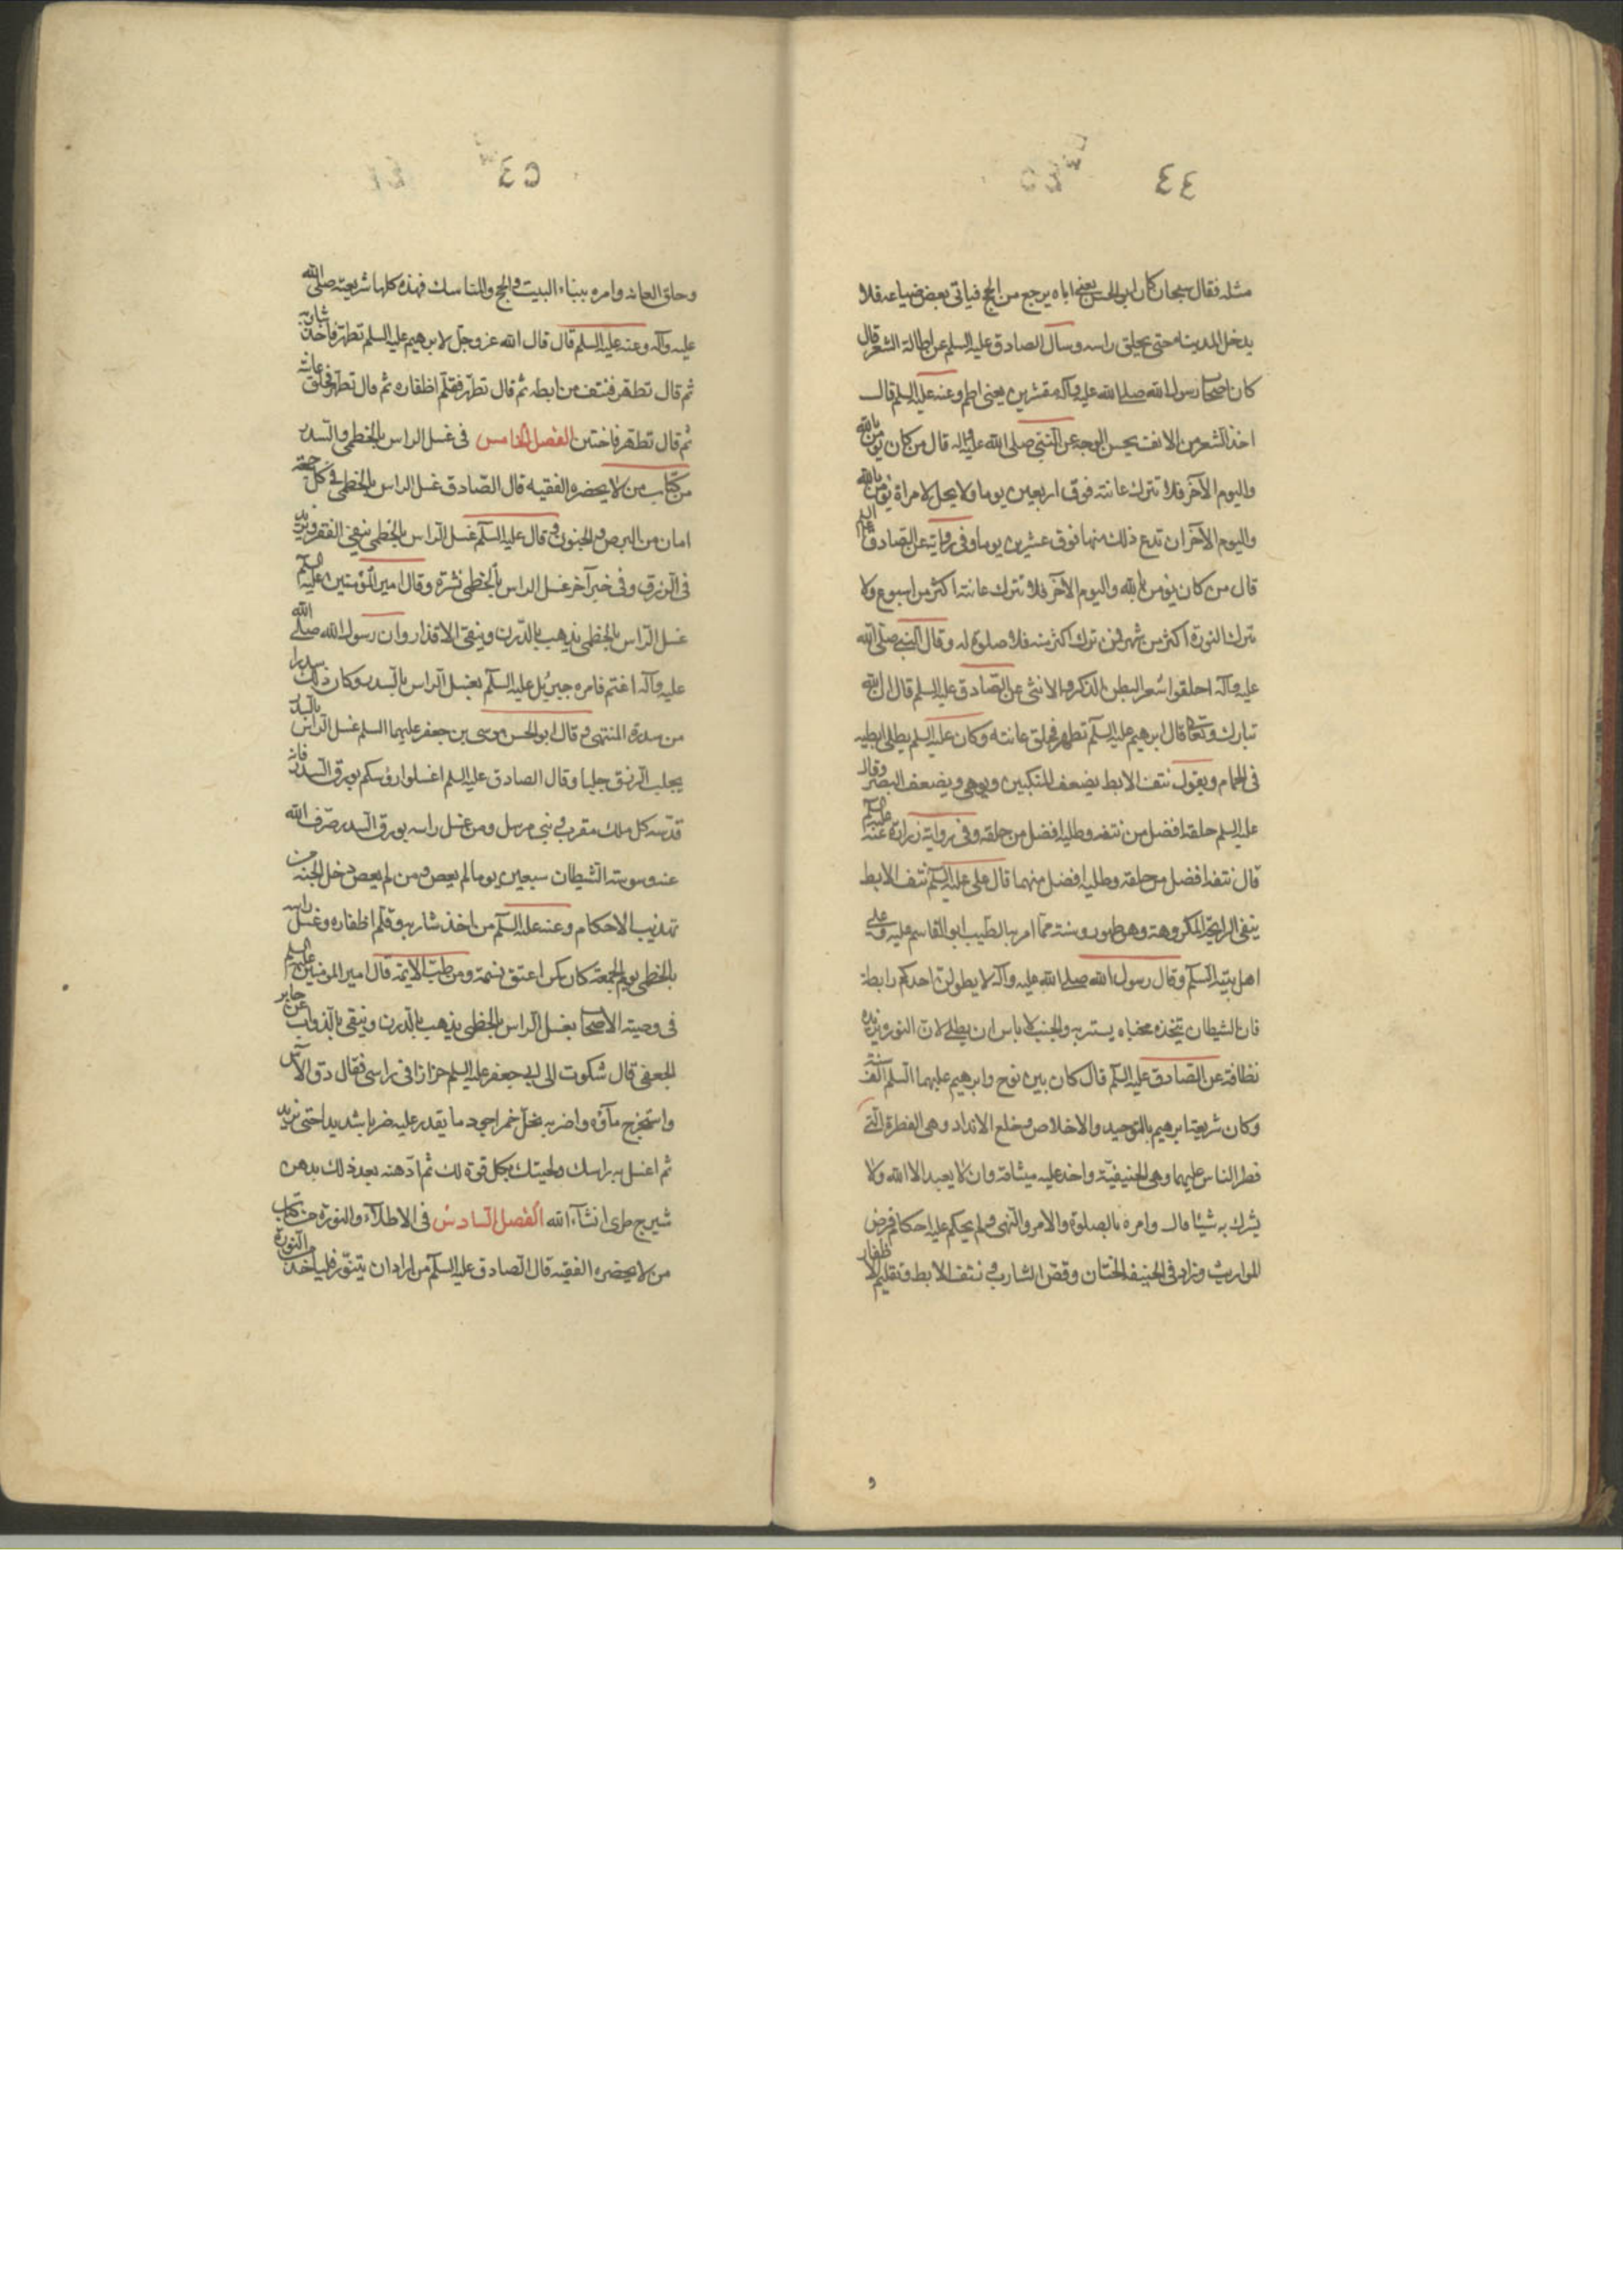 ٤٤
مثله فقال سبحان كان ابو الحسن يعنى اباه يرجع من الحج فياتى بعض ضياعه فلا
يدخل المدينة حتى يحلق راسه وسال الصادق عليه السلم عن اطالة الشعر قال
كان اصحاب رسول الله صلى الله عليه وآله مقشرين يعنى الطم وعنه عليه السلم قال
اخذ الشعر من الانف يحسن الوجه عن النبى صلى الله عليه واله قال من كان يؤمن بالله
واليوم الآخر فلا تترك عانته فوق اربعين يوما ولا يحل لامراة تؤمن بالله
واليوم الآخر ان تدع ذلك منها فوق عشرين يوما وفى رواية عن الصادق عليه السلم
قال من كان يؤمن بالله واليوم الآخر فلا تترك عانته اكثر من اسبوع ولا
تترك النورة اكثر من شهر فمن ترك اكثر منه فلا صلوة له وقال النبى صلى الله
عليه وآله احلقوا شعر البطن الذكر والانثى عن الصادق عليه السلم قال ان الله
تبارك وتعالى قال ابرهيم عليه السلم تطهر فحلق عانته وكان عليه السلم يطلى ابطيه
فى الحمام ويقول نتف الابط يضعف المنكبين ويوهى ويضعف البصر وقال
عليه السلم حلقه افضل من نتفه وطليه افضل من حلقه وفى رواية زرارة عنه عليه السلم
قال نتفه افضل من حلقه وطليه افضل منهما قال على عليه السلم نتف الابط
ينفى الرايحة المكروهة وهو طهور وسنة مما امر به الطيب ابو القاسم عليه وعلى
اهل بيته السلم وقال رسول الله صلى الله عليه وآله لا يطولن احدكم رابطة
فان الشيطان يتخذه مخباه يستتر به والجنب لا باس ان يطلى لان النورة تزيده
نظافة عن الصادق عليه السلم قال كان بين نوح وابرهيم عليهما السلم الف سنة
وكان شريعة ابرهيم بالتوحيد والاخلاص وخلع الانداد وهى الفطرة التى
فطر الناس عليها وهى الحنيفية واخذ عليه ميثاقه وان لا يعبد الا الله ولا
يشرك به شيئا قال وامره بالصلوة والامر والنهى ولم يحكم عليه احكام فرض
المواريث وزاده فى الحنيفة الختان وقص الشارب ونتف الابط وتقليم الاظفار
و
٤٥
وحلق العانه وامره ببناء البيت والحج والمناسك فهذه كلها شريعته صلى الله
عليه وآله وعنه عليه السلم قال قال الله عز وجل لابرهيم عليه السلم تطهر فاخذ شاربه
ثم قال تطهر فنتف من ابطه ثم قال تطهر فقلم اظفاره ثم قال تطهر فحلق عانته
ثم قال تطهر فاختتن الفصل الخامس فى غسل الراس بالخطمى والسدر
من كتاب من لا يحضره الفقيه قال الصادق غسل الراس بالخطمى فى كل جمعة
امان من البرص والجنون وقال عليه السلم غسل الراس بالخطمى ينفى الفقر ويزيد
فى الرزق وفى خبر آخر غسل الراس بالخطمى نشرة وقال امير المؤمنين عليه السلم
غسل الراس بالخطمى يذهب بالدرن وينقى الاقذار وان رسول الله صلى الله
عليه وآله اغتم فامره جبرئيل عليه السلم بغسل الراس بالسدر وكان ذلك سدرا
من سدرة المنتهى وقال ابو الحسن موسى بن جعفر عليهما السلم غسل الراس بالسدر
يجلب الرزق جلبا وقال الصادق عليه السلم اغسلوا رؤسكم بورق السدر فانه
قدسه كل ملك مقرب ونبى مرسل ومن غسل راسه بورق السدر صرف الله
عنه وسوسة الشيطان سبعين يوما لم يعص ومن لم يعص دخل الجنة من
تهذيب الاحكام وعنه عليه السلم من اخذ شاربه وقلم اظفاره وغسل راسه
بالخطمى يوم الجمعة كان كمن اعتق نسمة ومن طب الائمة قال امير المومنين عليه السلم
فى وصيته لاصحابه غسل الراس بالخطمى يذهب بالدرن وينقى بالذواب عن جابر
الجعفى قال شكوت الى ابى جعفر عليه السلم حزازا فى راسى فقال دق الآس
واستخرج ماؤه واضربه بخل خمر اجود ما يقدر عليه ضربا شديدا حتى يزبد
ثم اغسل به راسك ولحيتك بكل قوة لك ثم ادهنه بعد ذلك بدهن
شيرج طرى انشاء الله الفصل السادس فى الاطلاء والنورة من كتاب
من لا يحضره الفقيه قال الصادق عليه السلم من اراد ان يتنور فلياخذ من النورة